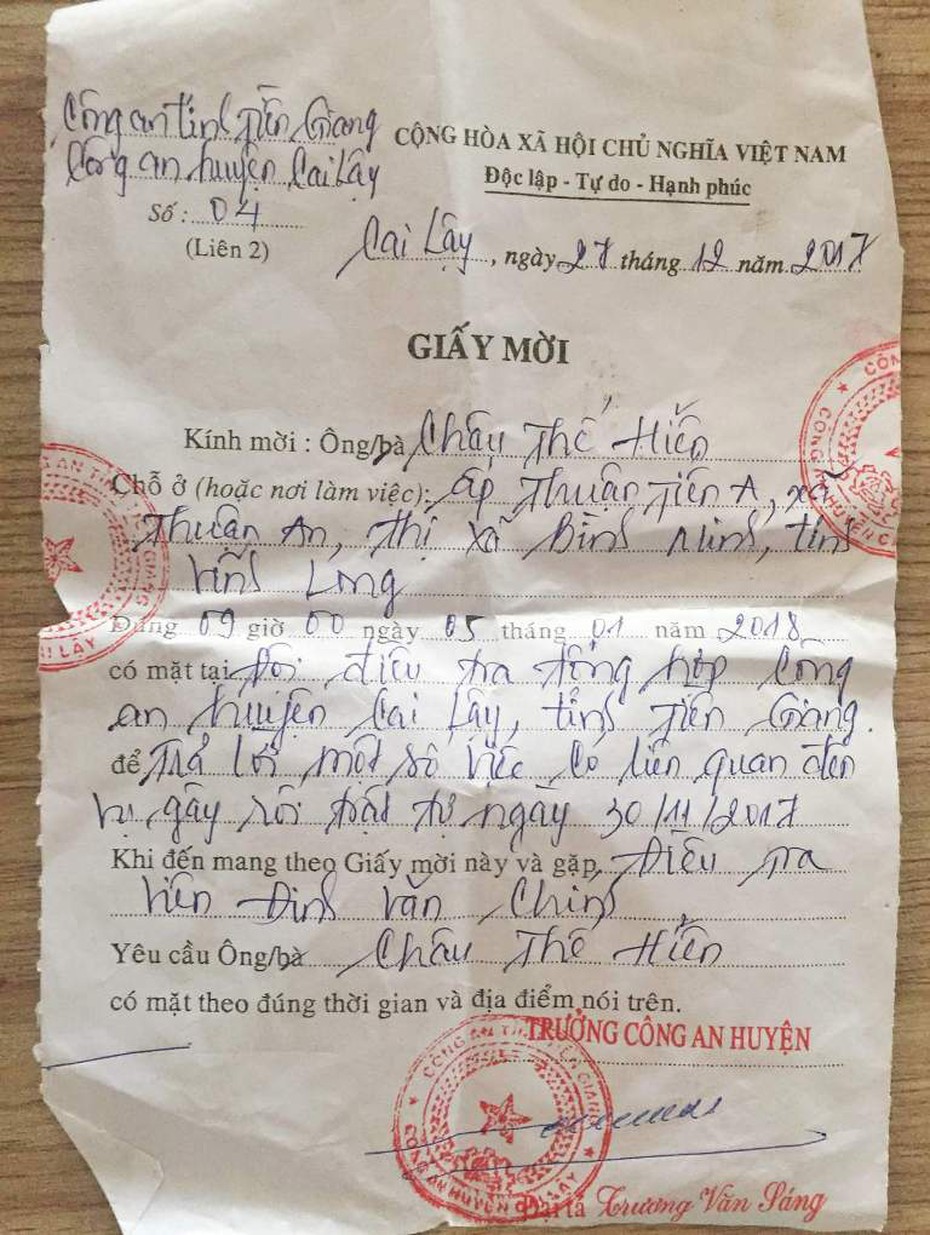 Công an tỉnh Tiền Giang
Công an huyện Cai Lậy
Số : 04
(Liên 2)
CỘNG HÒA XÃ HỘI CHỦ NGHĨA VIỆT NAM
Độc lập - Tự do - Hạnh phúc
Cai Lậy, ngày 27 tháng 12 năm 2017
GIẤY MỜI
Kính mời : Ông/bà Châu Thế Hiển
Chỗ ở (hoặc nơi làm việc): ấp Thuận Tiến A, xã
Thuận An, thị xã Bình Minh, tỉnh
Vĩnh Long
Đúng 09 giờ 00 ngày 05 tháng 01 năm 2018
có mặt tại Đội điều tra tổng hợp Công
an huyện Cai Lậy, tỉnh Tiền Giang.
để Trả lời một số việc có liên quan đến
vụ gây rối trật tự ngày 30/11/2017
Khi đến mang theo Giấy mời này và gặp Điều tra
viên Đinh Văn Chinh
Yêu cầu Ông/bà Châu Thế Hiển
có mặt theo đúng thời gian và địa điểm nói trên.
TRƯỞNG CÔNG AN HUYỆN
CÔNG AN TỈNH TIỀN GIANG
CÔNG AN HUYỆN CAI LẬY
Đại tá Trương Văn Sáng